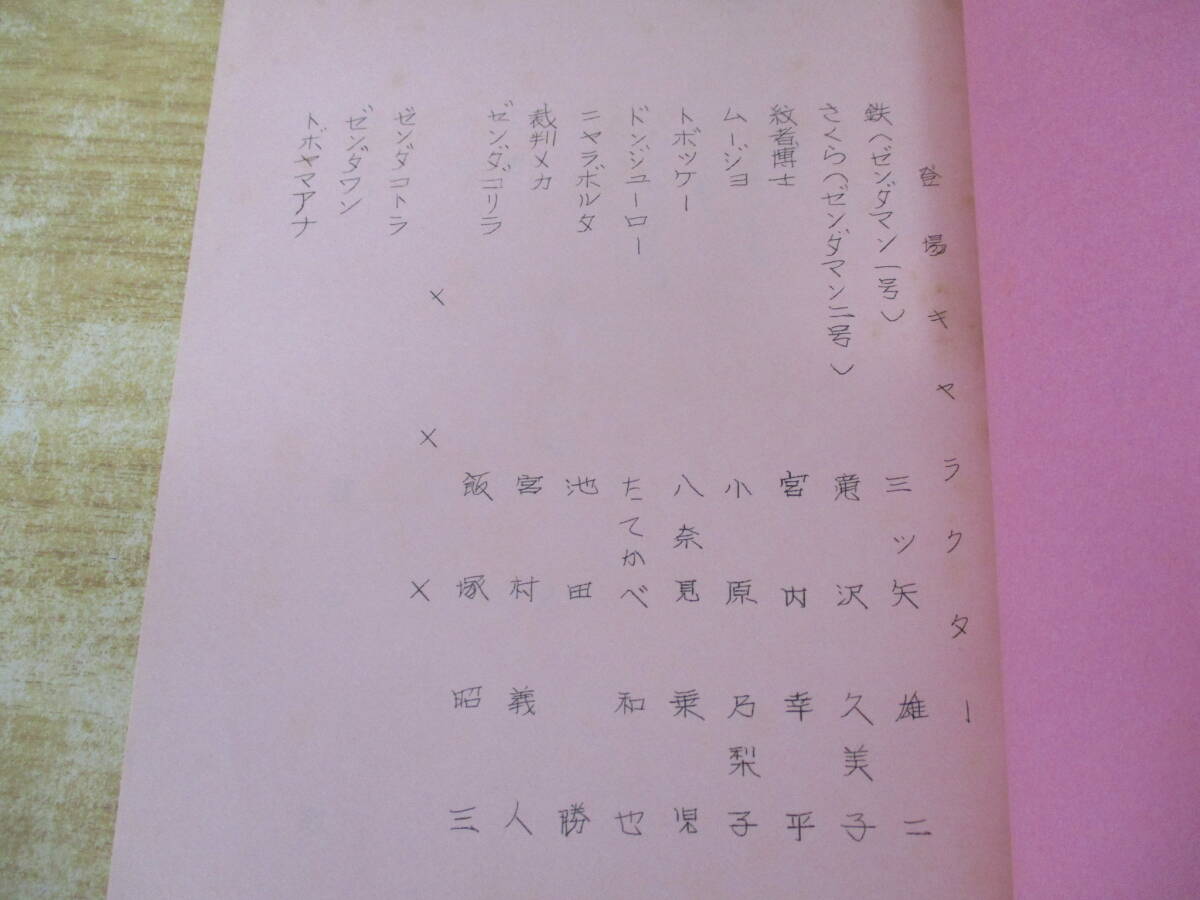 登場キャラクター
鉄（ゼンダマン一号） 三ツ矢雄二
さくら（ゼンダマン二号） 滝沢久美子
紋者博士 宮内幸平
ムージョ 小原乃梨子
トボッケー 八奈見乗児
ドンジューロー たてかべ和也
ニャラボルタ 池田勝
裁判メカ 宮村義人
ゼンダゴリラ 飯塚昭三
× × ×
ゼンダコトラ
ゼンダワン
トボヤマアナ